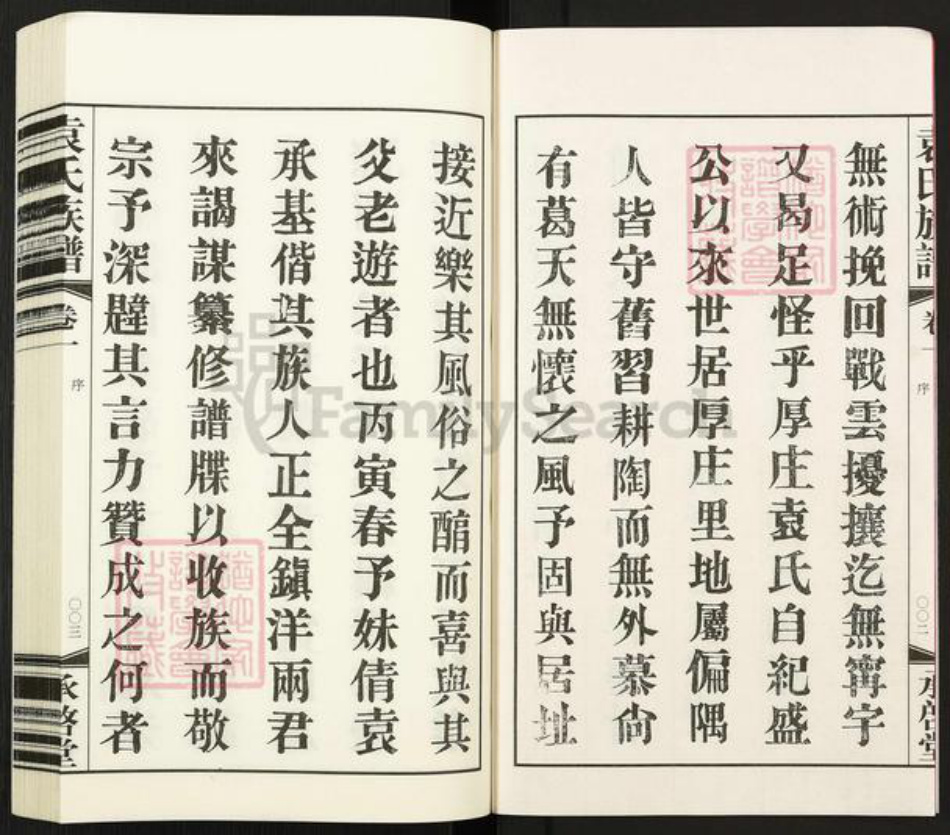 袁氏族譜
卷一
序
〇〇二
承啓堂
無術挽回戰雲擾攘迄無寧宇
又曷足怪乎厚庄袁氏自紀盛
公以來世居厚庄里地屬偏隅
人皆守舊習耕陶而無外慕尙
有葛天無懷之風予固與居址
接近樂其風俗之醇而喜與其
父老遊者也丙寅春予妹倩袁
承基偕其族人正全鎭洋兩君
來謁謀纂修譜牒以收族而敬
宗予深韙其言力贊成之何者
袁氏族譜
卷一
序
〇〇三
承啓堂
FamilySearch